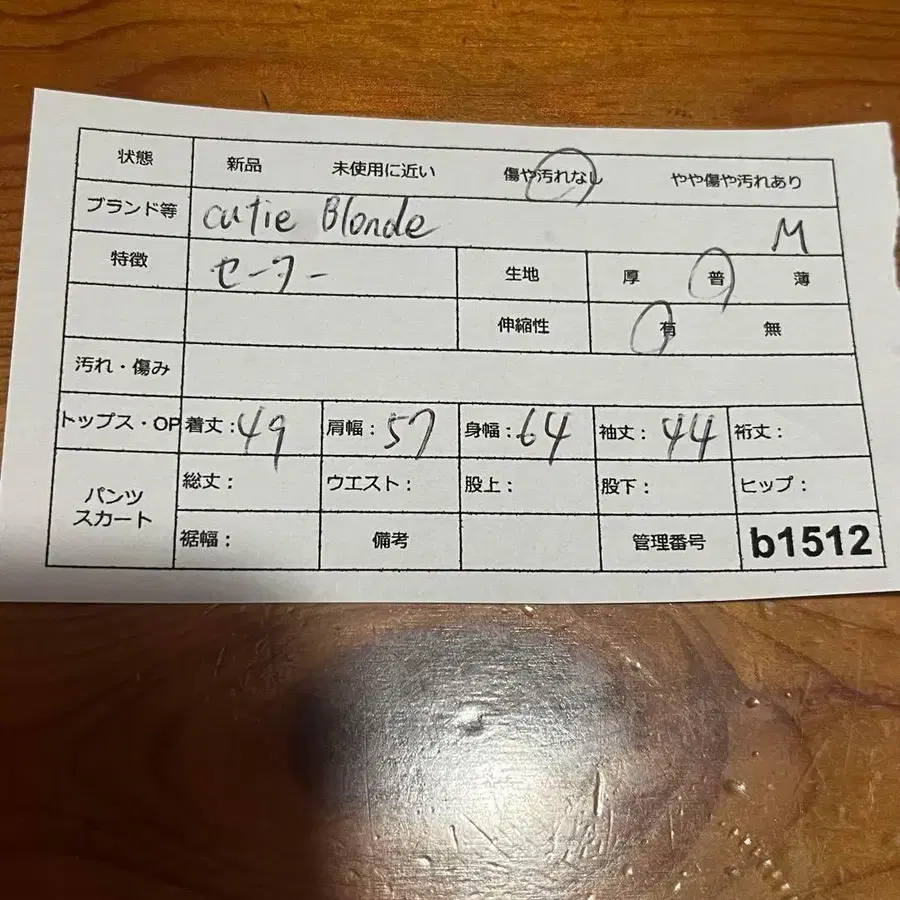 状態 新品 未使用に近い 傷や汚れなし やや傷や汚れあり
ブランド等 cutie Blonde M
特徴 セーラー 生地 厚 普 薄
伸縮性 有 無
汚れ・傷み
トップス・OP 着丈：49 肩幅：57 身幅：64 袖丈：44 裄丈：
パンツ スカート 総丈： ウエスト： 股上： 股下： ヒップ：
裾幅： 備考 管理番号 b1512